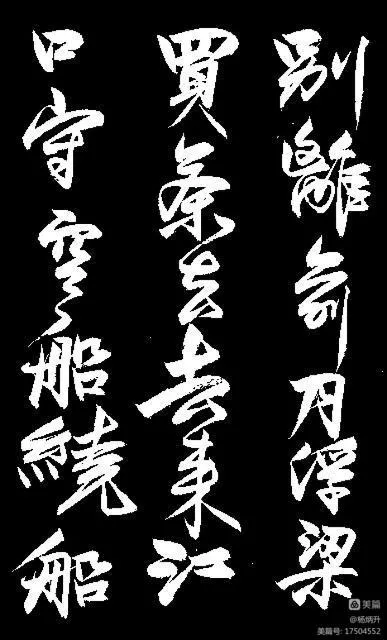 别離前月浮梁
買茶去去来江
口守空船繞船
美篇
@杨炳升
美篇号: 17504552